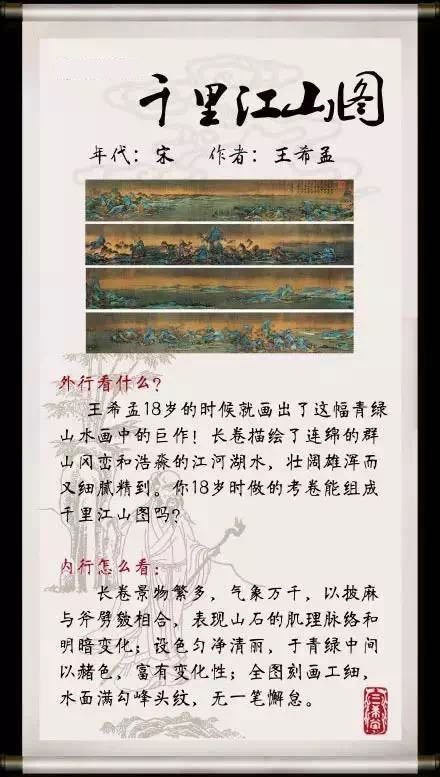 千里江山图
年代：宋 作者：王希孟
外行看什么？
王希孟18岁的时候就画出了这幅青绿
山水画中的巨作！长卷描绘了连绵的群
山冈峦和浩淼的江河湖水，壮阔雄浑而
又细腻精到。你18岁时做的考卷能组成
千里江山图吗？
内行怎么看：
长卷景物繁多，气象万千，以披麻
与斧劈皴相合，表现山石的肌理脉络和
明暗变化；设色匀净清丽，于青绿中间
以赭色，富有变化性；全图刻画工细，
水面满勾峰头纹，无一笔懈怠。